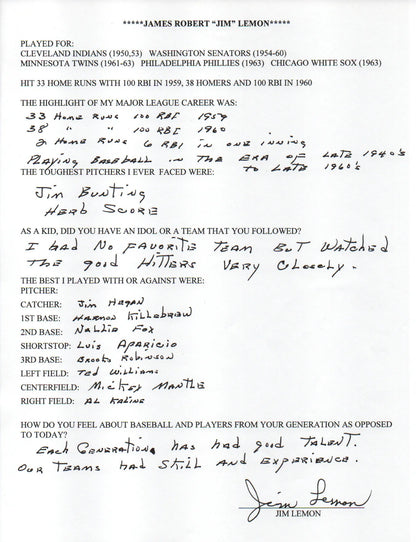 *****JAMES ROBERT "JIM" LEMON*****
PLAYED FOR:
CLEVELAND INDIANS (1950,53) WASHINGTON SENATORS (1954-60)
MINNESOTA TWINS (1961-63) PHILADELPHIA PHILLIES (1963) CHICAGO WHITE SOX (1963)
HIT 33 HOME RUNS WITH 100 RBI IN 1959, 38 HOMERS AND 100 RBI IN 1960
THE HIGHLIGHT OF MY MAJOR LEAGUE CAREER WAS:
33 Home Runs 100 RBI 1959
38 " " 100 RBI 1960
2 Home Runs 6 RBI in one inning
Playing Baseball in the Era of Late 1940's
to Late 1960's
THE TOUGHEST PITCHERS I EVER FACED WERE:
Jim Bunting
Herb Score
AS A KID, DID YOU HAVE AN IDOL OR A TEAM THAT YOU FOLLOWED?
I had No Favorite Team But Watched
The good Hitters Very Closely.
THE BEST I PLAYED WITH OR AGAINST WERE:
PITCHER:
CATCHER: Jim Hegan
1ST BASE: Harmon Killebrew
2ND BASE: Nellie Fox
SHORTSTOP: Luis Aparicio
3RD BASE: Brooks Robinson
LEFT FIELD: Ted Williams
CENTERFIELD: Mickey Mantle
RIGHT FIELD: Al Kaline
HOW DO YOU FEEL ABOUT BASEBALL AND PLAYERS FROM YOUR GENERATION AS OPPOSED
TO TODAY?
Each Generation has had good Talent.
Our Teams had Skill and Experience.
Jim Lemon
JIM LEMON